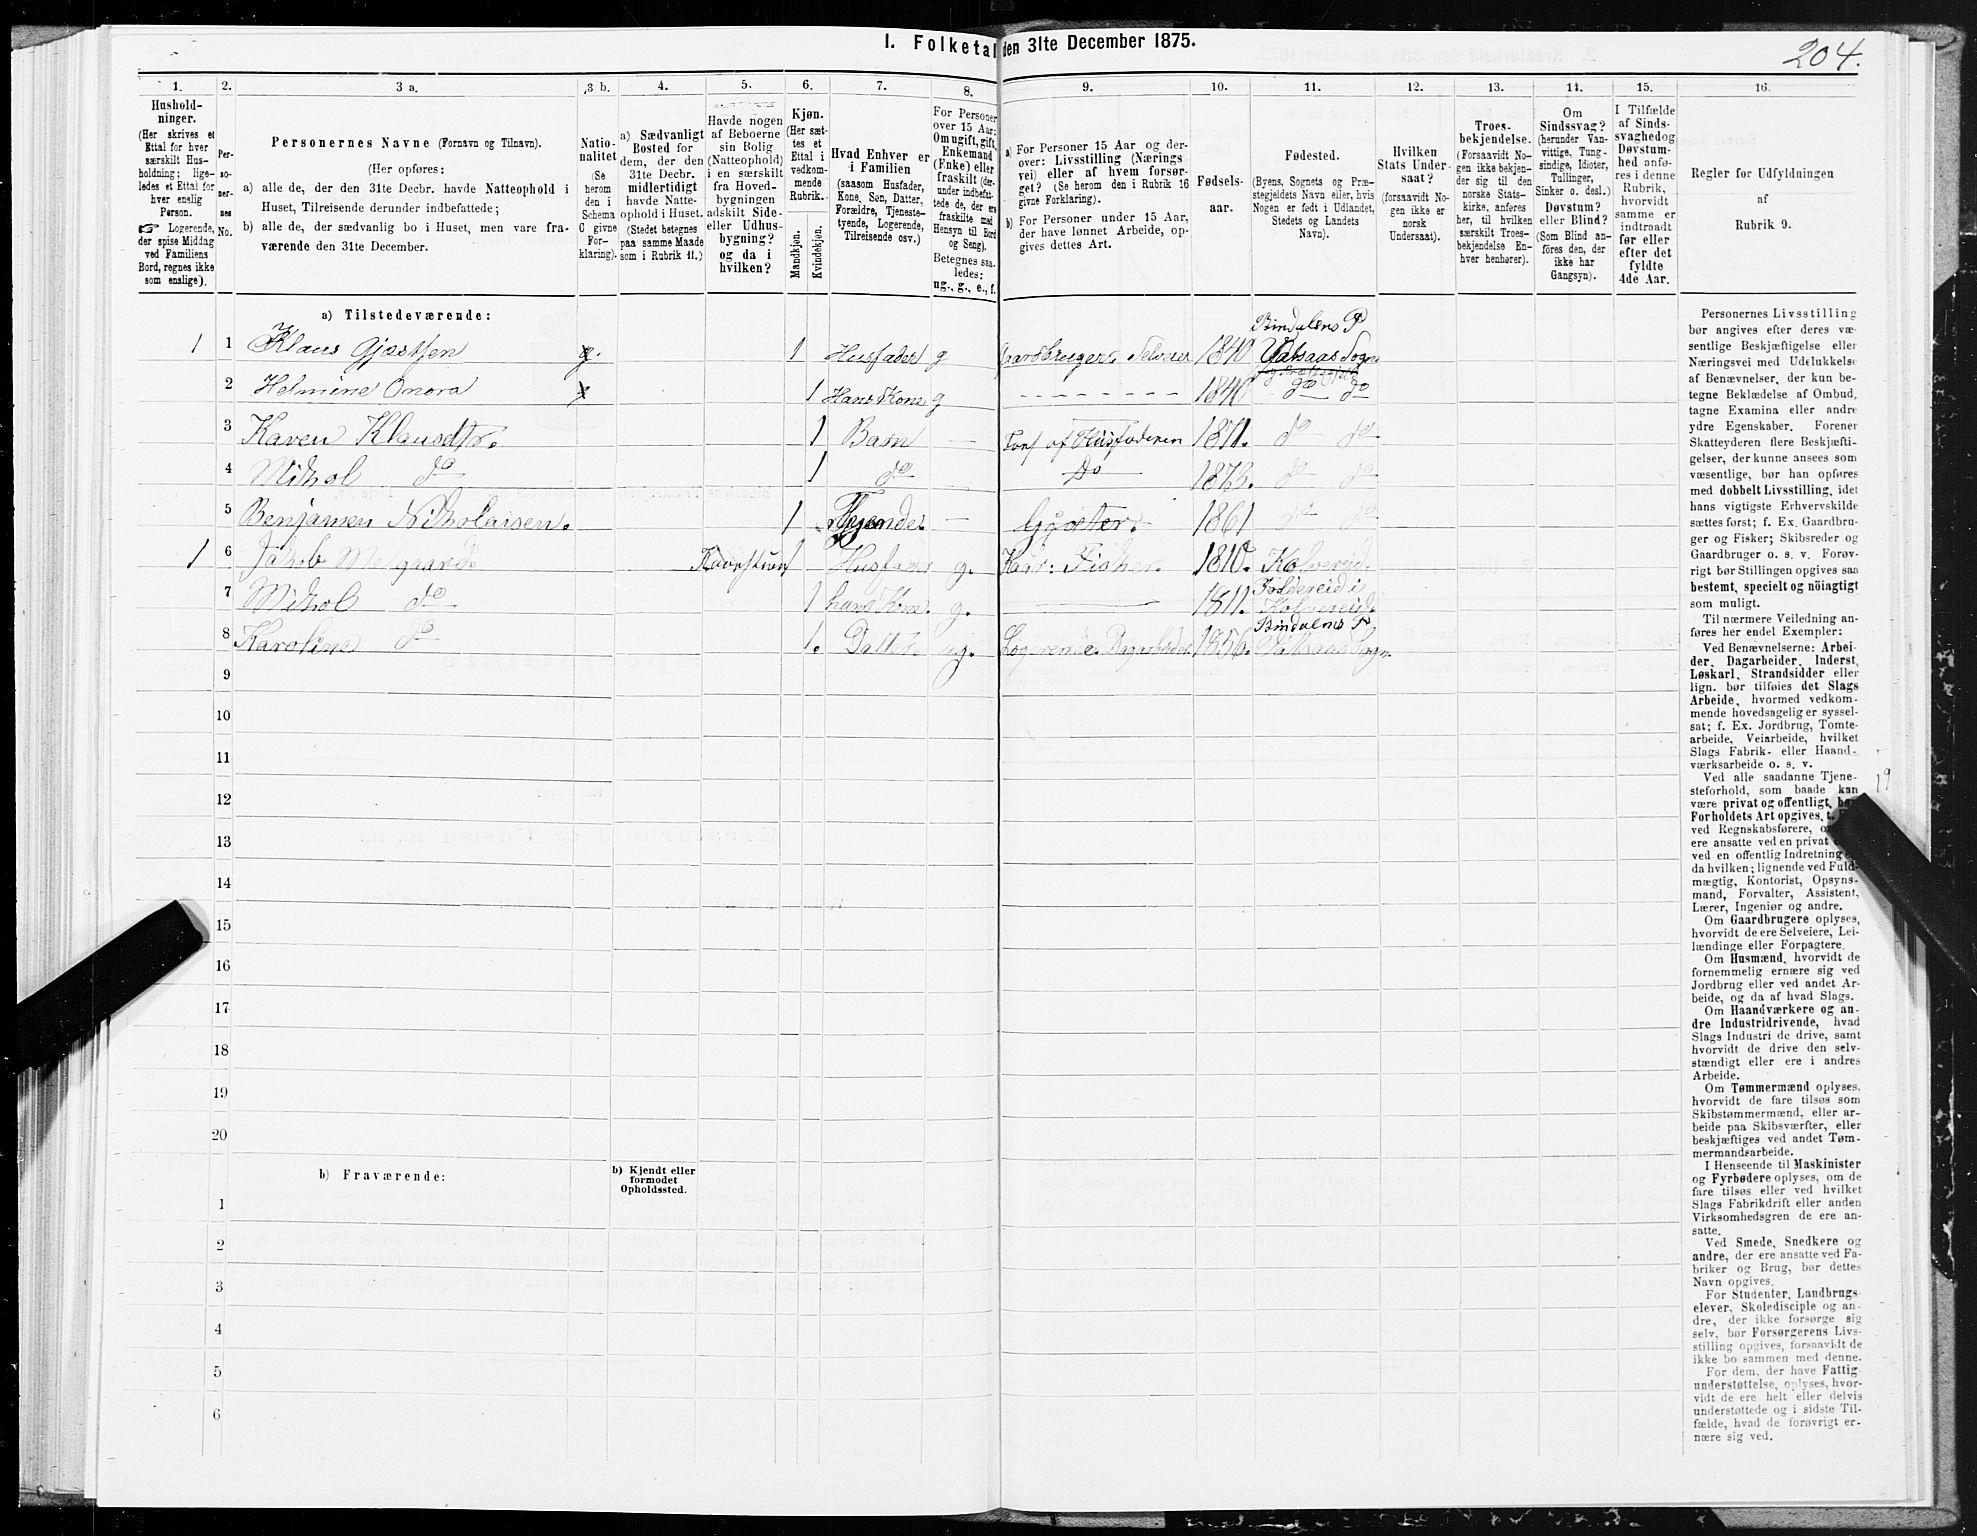 1. Folketal den 31te December 1875.
204.
1. 2. 3 a. 3 b. 4. 5. 6. 7. 8. 9. 10. 11. 12. 13. 14. 15. 16.
Hushold-
ninger.
(Her skrives et
Ettal for hver
særskilt Hus-
holdning; lige-
ledes et Ettal for
hver enslig
Person.
☞ Logerende,
der spise Middag
ved Familiens
Bord, regnes ikke
som enslige).
Per-
so-
ner-
nes
No.
Personernes Navne (Fornavn og Tilnavn).
(Her opføres:
a) alle de, der den 31te Decbr. havde Natteophold i
Huset, Tilreisende derunder indbefattede;
b) alle de, der sædvanlig bo i Huset, men vare fra-
værende den 31te December.
Natio-
nalitet
(Se
herom
den i
Schema
C givne
For-
klaring).
a) Sædvanligt
Bosted for
dem, der den
31te Decbr.
midlertidigt
havde Natte-
ophold i Huset.
(Stedet betegnes
paa samme Maade
som i Rubrik 11.)
Havde nogen
af Beboerne
sin Bolig
(Natteophold)
i en særskilt
fra Hoved-
bygningen
adskilt Side-
eller Udhus-
bygning?
og da i
hvilken?
Kjøn.
(Her sæt-
tes et
Ettal i
vedkom-
mende
Rubrik.
Mandkjøn.
Kvindekjøn.
Hvad Enhver er
i Familien
(saasom Husfader,
Kone, Søn, Datter,
Forældre, Tjeneste-
tyende, Logerende,
Tilreisende osv.)
For Personer
over 15 Aar:
Om ugift, gift,
Enkemand
(Enke) eller
fraskilt (der-
under indbefat-
tede de, der ere
fraskilte med
Hensyn til Bord
og Seng).
Betegnes saa-
ledes:
ug., g., e., f.
a) For Personer 15 Aar og der-
over: Livsstilling (Nærings-
vei) eller af hvem forsør-
get? (Se herom den i Rubrik 16
givne Forklaring).
b) For Personer under 15 Aar,
der have lønnet Arbeide, op-
gives dettes Art.
Fødsels-
aar.
Fødested.
(Byens, Sognets og Præ-
stegjeldets Navn eller, hvis
Nogen er født i Udlandet,
Stedets og Landets
Navn).
Hvilken
Stats Under-
saat?
(forsaavidt No-
gen ikke er
norsk
Undersaat).
Troes-
bekjendelse.
(Forsaavidt No-
gen ikke bekjen-
der sig til den
norske Stats-
kirke, anføres
her, til hvilken
særskilt Troes-
bekjendelse En-
hver henhører).
Om
Sindssvag?
(herunder Van-
vittige, Tung-
sindige, Idioter,
Tullinger,
Sinker o. desl.)
Døvstum?
eller Blind?
(Som Blind an-
føres den, der
ikke har
Gangsyn).
I Tilfælde
af Sinds-
svaghed og
Døvstum-
hed anfø-
res i denne
Rubrik,
hvorvidt
samme er
indtraadt
før eller
efter det
fyldte
4de Aar.
Regler for Udfyldningen
af
Rubrik 9.
a) Tilstedeværende:
1 1 Klaus Gjæstsen 1 Husfader g Gaardbruger Selveier 1840 Bindalens P Vatsaas Sogn
2 Helmine Onora 1 Hans Kone g 1840 do do
3 Karen Klausdtr. 1 Barn — Fors af Husfaderen 1871. do do
4 Mikol do 1 do Do 1873. do do
5 Benjamen Nikolaisen. 1 Tyende. — Gjæter. 1861 do do
1 6 Jakob 1 Husfader g. Kaar: Fisker. 1810. Kolvereid.
7 Mikol do 1 hans Kone. g. — 1811. Foldereid i Kolvereid.
8 Karoline do 1. Datter. ug. Logerende. Dagarbeider 1856. Bindalens P. Vatsaas Sogn.
9
10
11
12
13
14
15
16
17
18
19
20
b) Fraværende:
b) Kjendt eller
formodet
Opholdssted.
1
2
3
4
5
6
Personernes Livsstilling
bør angives efter deres væ-
sentlige Beskjæftigelse eller
Næringsvei med Udelukkelse
af Benævnelser, der kun be-
tegne Beklædelse af Ombud,
tagne Examina eller andre
ydre Egenskaber. Forener
Skatteyderen flere Beskjæfti-
gelser, der kunne ansees som
væsentlige, bør han opføres
med dobbelt Livsstilling, idet
hans vigtigste Erhvervskilde
sættes først; f. Ex. Gaardbru-
ger og Fisker; Skibsreder og
Gaardbruger o. s. v. Forøv-
rigt bør Stillingen opgives saa
bestemt, specielt og nöiagtigt
som muligt.
Til nærmere Veiledning an-
føres her endel Exempler:
Ved Benævnelserne: Arbei-
der, Dagarbeider, Inderst,
Løskarl, Strandsidder eller
lign. bør tilføies det Slags
Arbeide, hvormed vedkom-
mende hovedsagelig er syssel-
sat; f. Ex. Jordbrug, Tomte-
arbeide, Veiarbeide, hvilket
Slags Fabrik- eller Haand-
værksarbeide o. s. v.
Ved alle saadanne Tjene-
steforhold, som baade kan
være privat og offentligt, bør
Forholdets Art opgives,
ved Regnskabsførere,
ere ansatte ved en privat
ved en offentlig Indretning
da hvilken; lignende ved Fuld-
mægtig, Kontorist, Opsyns-
mand, Forvalter, Assistent,
Lærer, Ingeniør og andre.
Om Gaardbrugere oplyses,
hvorvidt de ere Selveiere, Lei-
lændinge eller Forpagtere.
Om Husmænd, hvorvidt de
fornemmelig ernære sig ved
Jordbrug eller ved andet Ar-
beide, og da af hvad Slags.
Om Haandværkere og an-
dre Industridrivende, hvad
Slags Industri de drive, samt
hvorvidt de drive den selv-
stændigt eller ere i andres
Arbeide.
Om Tømmermænd oplyses,
hvorvidt de fare tilsøs som
Skibstømmermænd, eller ar-
beide paa Skibsværfter, eller
beskjæftiges ved andet Tøm-
mermandsarbeide.
I Henseende til Maskinister
og Fyrbødere oplyses, om de
fare tilsøs eller ved hvilket
Slags Fabrikdrift eller anden
Virksomhedsgren de ere an-
satte.
Ved Smede, Snedkere og
andre, der ere ansatte ved Fa-
briker og Brug, bør dettes
Navn opgives.
For Studenter, Landbrugs-
elever, Skoledisciple og an-
dre, der ikke forsørge sig
selv, bør Forsørgerens Livs-
stilling opgives, forsaavidt de
ikke bo sammen med denne.
For dem, der have Fattig-
understøttelse, oplyses, hvor-
vidt de ere helt eller delvis
understøttede og i sidste Til-
fælde, hvad de forøvrigt er-
nære sig ved.